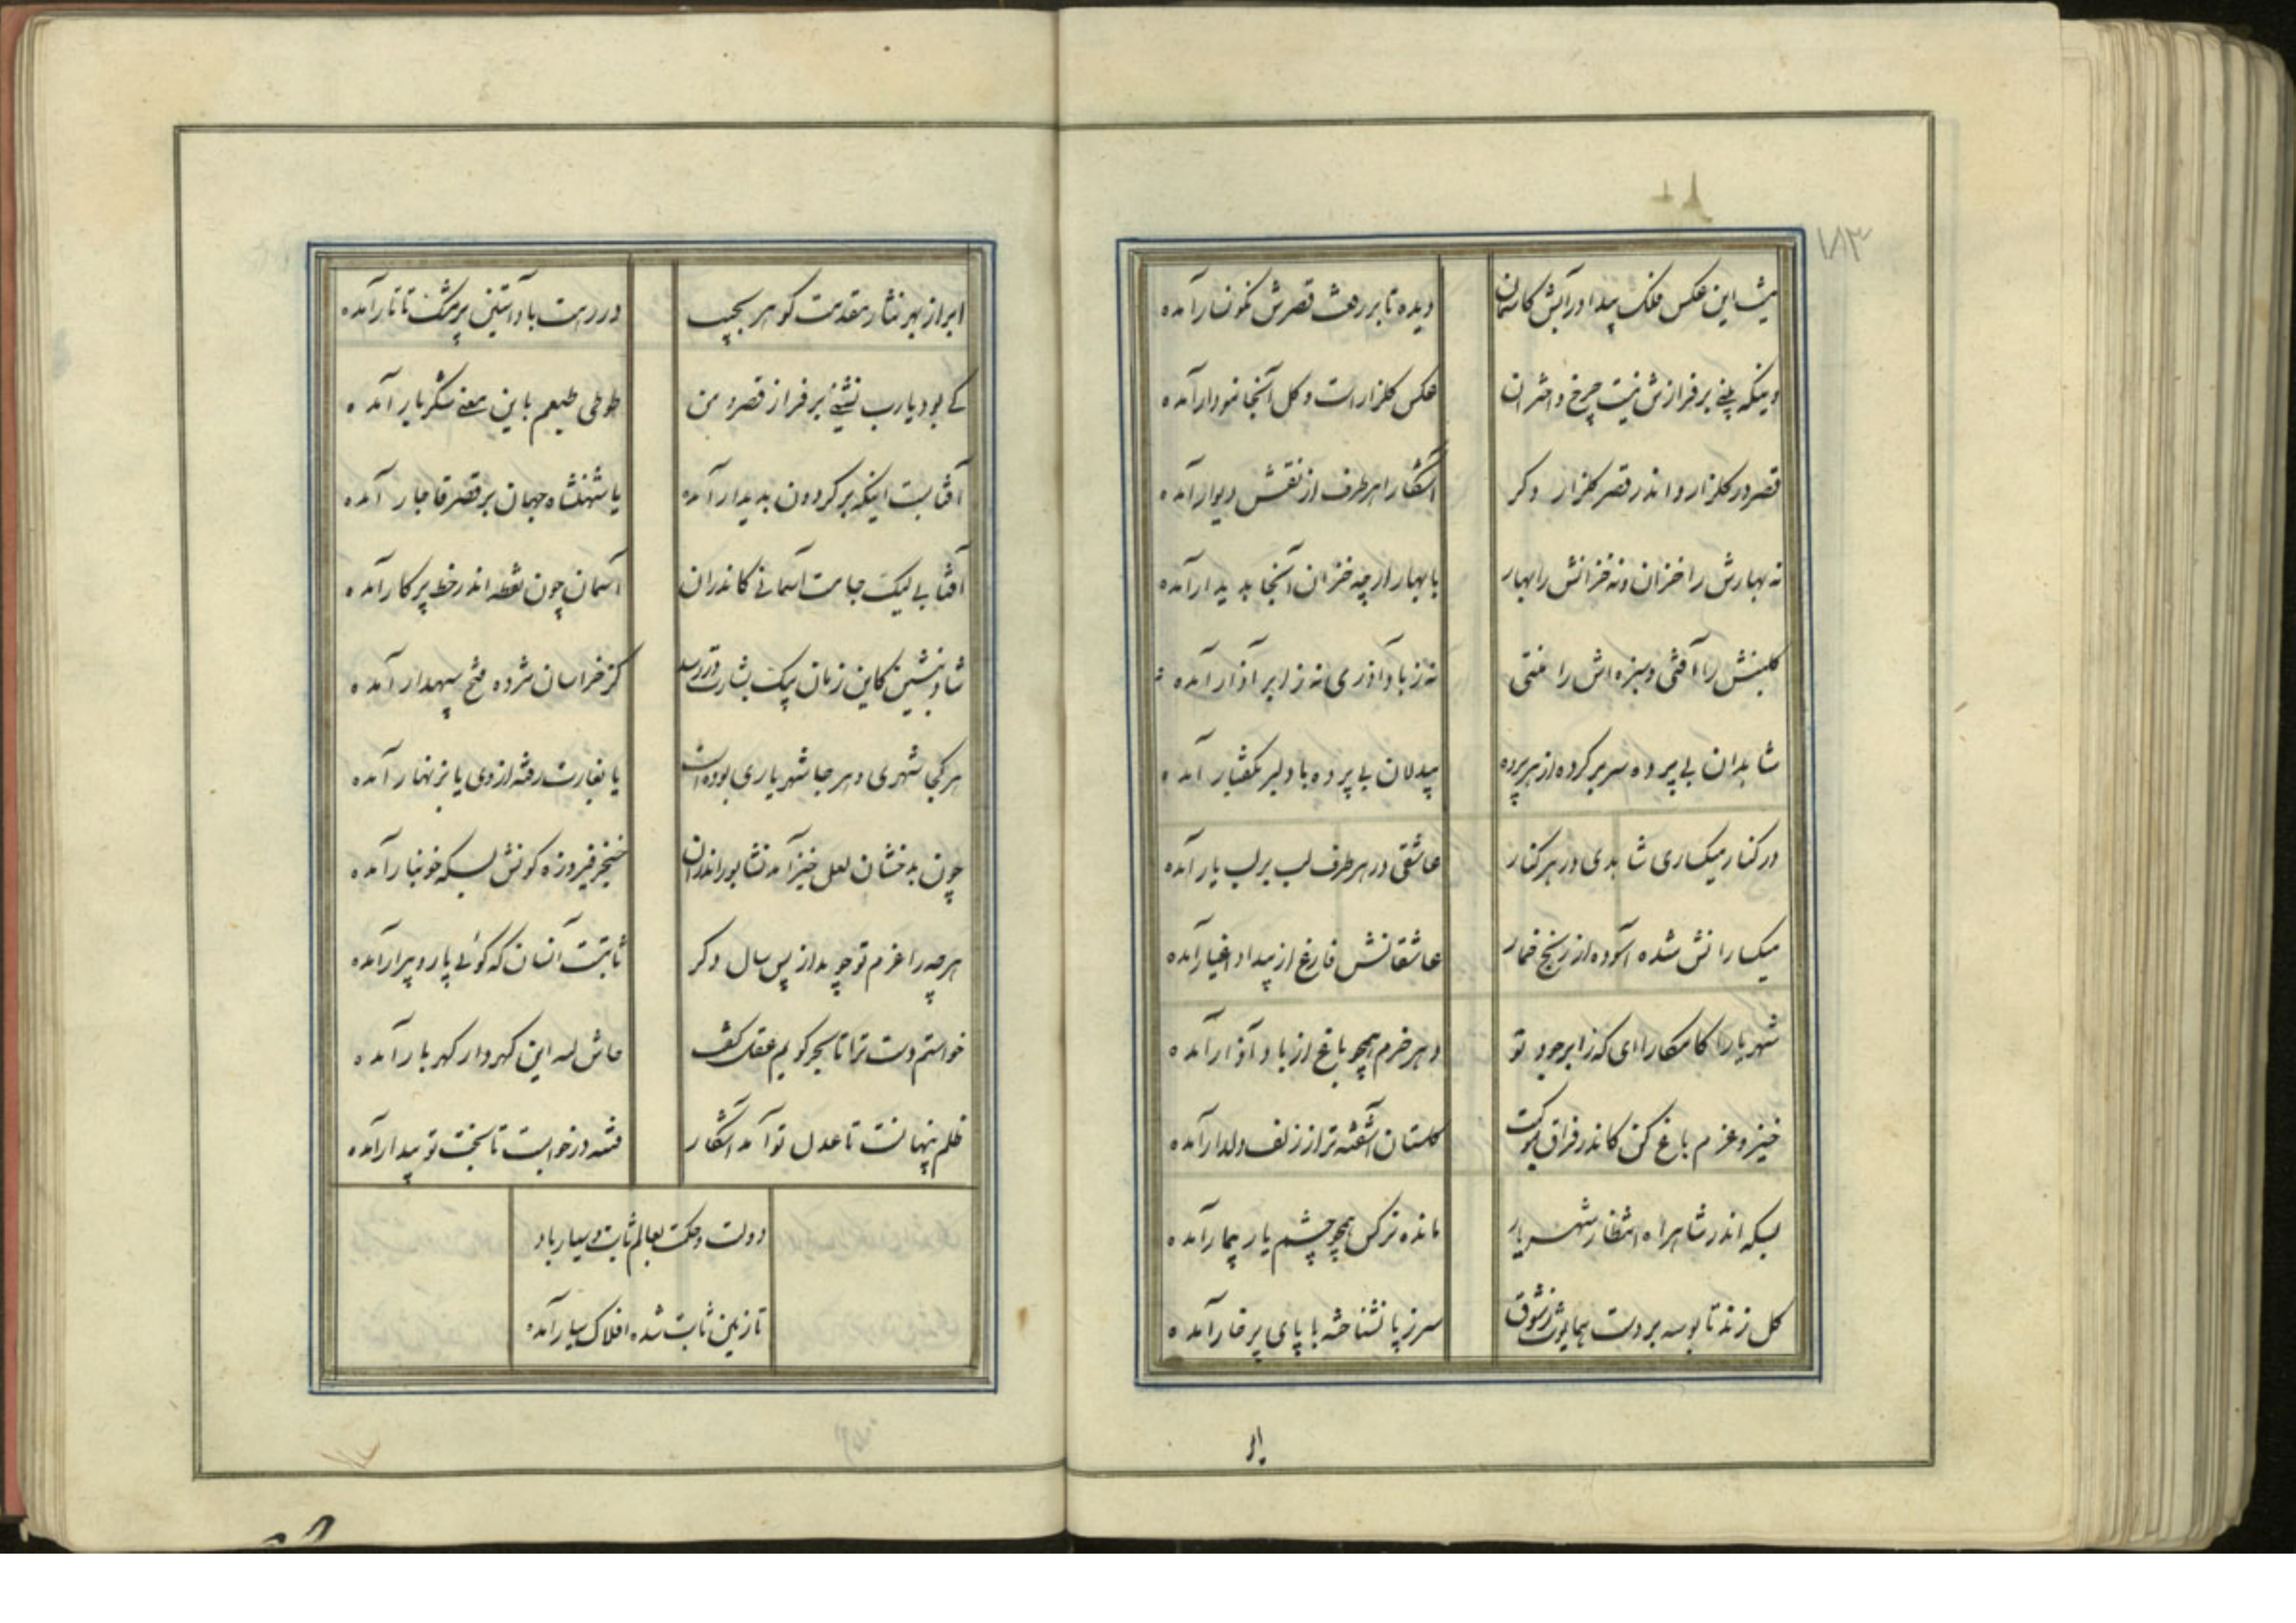 ۱۸۳
نیست این عکس فلک پیدا در آبش کاسمان
دیده تا بر رفعت قصرش نگونسار آمده
وینکه بینی بر فرازش نیست چرخ و اختران
عکس گلزار است و گل آنجا نمودار آمده
قصر در گلزار و اندر قصر گلزار دگر
آشکارا هر طرف از نقش دیوار آمده
نه بهارش را خزان و نه خزانش را بهار
با بهار ار چه خزان آنجا پدیدار آمده
گلبنش را آفتی و سبزه اش را منتی
نه ز باد آذری نه ز ابر آذار آمده
شاهدان بی پرده سر بر کرده از هر پرده
بیدلان بی پرده با دلبر بگفتار آمده
در کنار میکساری شاهدی در هر کنار
عاشقی در هر طرف لب بر لب یار آمده
میکسارانش شده آسوده از رنج خمار
عاشقانش فارغ از بیداد اغیار آمده
شهریارا کامکارا ای که ز ابر جود تو
دهر خرم همچو باغ از باد آذار آمده
خیز و عزم باغ کن کاندر فراق موکبت
گلستان آشفته تر از زلف دلدار آمده
بسکه اندر شاهراه انتظار شهریار
مانده نرگس همچو چشم یار بیمار آمده
گل زند تا بوسه بر دست همایونت ز شوق
سر ز پا نشناخته با پای پر خار آمده
ابر از بهر نثار مقدمت گوهر بجیب
در رهت باد آستین پر مشک تاتار آمده
کی بود یارب نشینی بر فراز قصر و من
طوطی طبعم باین معنی شکربار آمده
آفتابست اینکه بر گردون پدیدار آمده
یا شهنشاه جهان بر قصر قاجار آمده
آفتابی لیک جایت آسمانی کاندران
آسمان چون نقطه اندر خط پرکار آمده
شاد بنشین کاین زمان پیک بشارت در رسد
کز خراسان مژده فتح سپهدار آمده
هر کجا شهری و هر جا شهریاری بوده است
یا بغارت رفته از وی یا بزنهار آمده
چون بدخشان لعل خیز آمد نشابور اندران
خنجر فیروزه گونش بسکه خونبار آمده
هر چه را عزم تو جوید از پس سال دگر
ثابتست آنسان که گوئی پار و پیرار آمده
خواستم دست ترا تا بحر گویم عقل گفت
حاش لله این گهردار گهربار آمده
ظلم پنهانست تا عدل تو آمد آشکار
فتنه در خوابست تا بخت تو بیدار آمده
دولت و حکمت بعالم ثابت و سیار باد
تا زمین ثابت شده افلاک سیار آمده